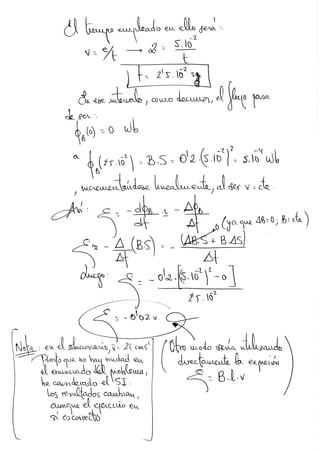 El tiempo empleado en ello será:
v = e/t → 2 = 5.10⁻² / t
t = 2'5.10⁻² sg
En ese intervalo, como decimos, el flujo pasa
de ser:
ϕB(0) = 0 Wb
a ϕB(2'5.10⁻²) = B.S = 0'2.(5.10⁻²)² = 5.10⁻⁴ Wb
, incrementándose linealmente, al ser v = cte.
Así: ξ = - dϕB/dt ≈ - ΔϕB/Δt
(ya que ΔB=0; B=cte)
ξ ≈ - Δ(BS)/Δt = - (ΔB.S + B.ΔS)/Δt
Luego: ξ = - 0'2.[(5.10⁻²)² - 0] / 2'5.10⁻²
ξ = - 0'02 v.
Nota: en el solucionario, v = 2i cm s⁻¹
Puesto que no hay unidad en
el enunciado del problema,
he considerado el SI.
los resultados cambian,
aunque el ejercicio en
sí es correcto
(Otro modo sería utilizando
directamente la expresión
ξ = B.l.v)